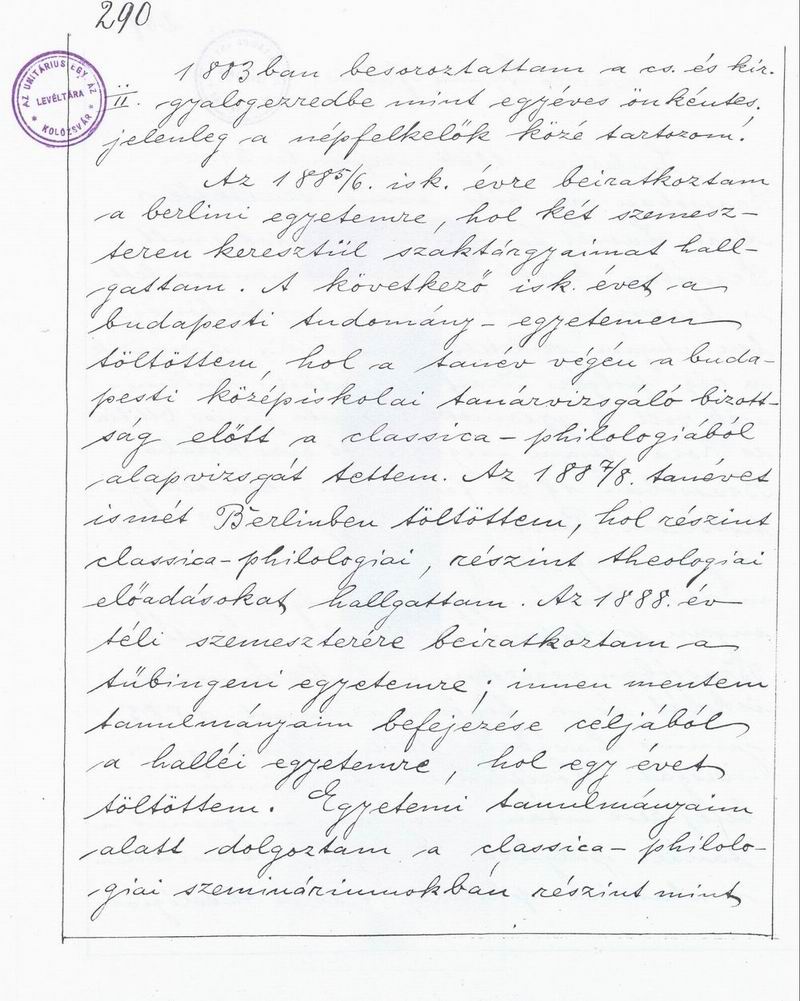 290
AZ UNITÁRIUS EGY. AZ
LEVÉLTÁRA
KOLOZSVÁR
1883ban besoroztattam a cs. és kir.
II. gyalogezredbe mint egyéves önkéntes.
jelenleg a népfelkelők közé tartozom.
Az 1885/6. isk. évre beiratkoztam
a berlini egyetemre, hol két szemesz-
teren keresztül szaktárgyaimat hall-
gattam. A következő isk. évet a
budapesti tudomány-egyetemen
töltöttem, hol a tanév végén a buda-
pesti középiskolai tanárvizsgáló bizott-
ság előtt a classica-philologiából
alapvizsgát tettem. Az 1887/8. tanévet
ismét Berlinben töltöttem, hol részint
classica-philologiai, részint theologiai
előadásokat hallgattam. Az 1888. év
téli szemeszterére beiratkoztam a
tübingeni egyetemre; innen mentem
tanulmányaim befejezése céljából
a halléi egyetemre, hol egy évet
töltöttem. Egyetemi tanulmányaim
alatt dolgoztam a classica-philolo-
giai szemináriumokban részint mint